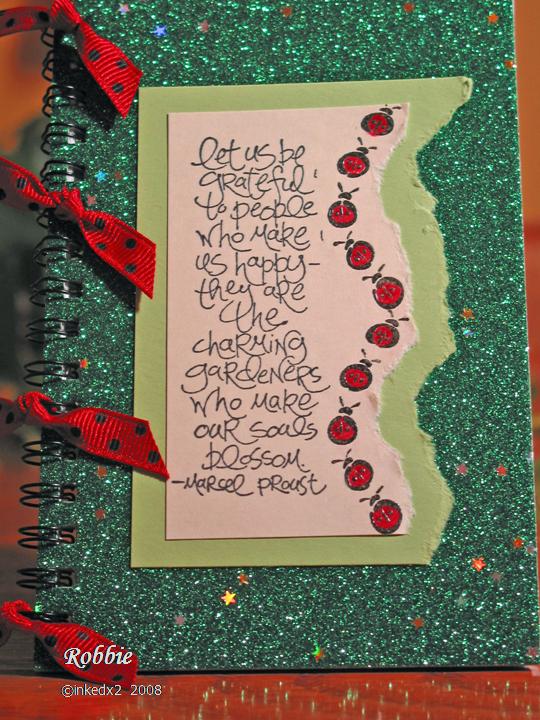 let us be
grateful
to people
who make
us happy-
they are
the
charming
gardeners
who make
our souls
blossom.
-Marcel Proust
Robbie
©inkedx2 2008